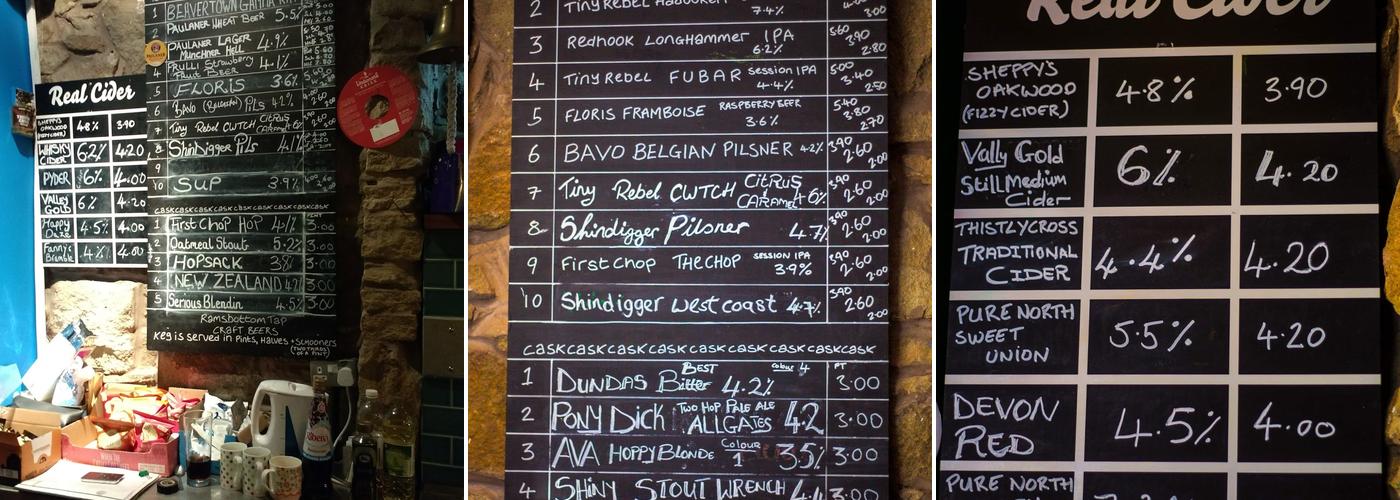 1 BEAVERTOWN GAMMA RAY
2 PAULANER WHEAT BEER 5.5%
PAULANER LAGER
MUNCHNER HELL 4.9%
4 FRULLI Strawberry
Fruit BEER 4.1%
5 FLORIS 3.6%
6 BAVO PILS 4.2%
7 Tiny Rebel CWTCH CITRUS
CARAMEL
8 ShinDigger Pils 4.1%
9
10 SUP 3.9%
caskcaskcaskcaskcaskcask
1 First Chop HOP 4.1%
2 Oatmeal Stout 5.2% 3.00
3 HOPSACK 3.8% 3.00
4 NEW ZEALAND 3.00
5 Serious Blendin 4.5% 3.00
Ramsbottom Tap
CRAFT BEERS
Keg is served in Pints, Halves + SCHOONERS
(TWO THIRDS
OF A PINT)
Real Cider
SHEPPY'S
OAKWOOD
(FIZZY CIDER) 4.8% 3.90
WHISKY
CIDER 6.2% 4.20
PYDER 6% 4.00
VALLEY
GOLD 6% 4.20
Happy
Daze 4.5% 4.00
Fanny's
Bramble 4% 4.00
2 Tiny Rebel HADOUKEN 7.4% 3.00
3 Redhook LONGHAMMER IPA
6.2% 5.60 3.90 2.80
4 Tiny Rebel FUBAR SESSION IPA
4.4% 5.00 3.40 2.50
5 FLORIS FRAMBOISE RASPBERRY BEER
3.6% 5.40 3.80 2.70
6 BAVO BELGIAN PILSNER 4.2% 3.90 2.60 2.00
7 Tiny Rebel CWTCH CITRUS
CARAMEL 4.6% 3.90 2.60 2.00
8 Shindigger Pilsner 4.7% 3.90 2.60 2.00
9 First Chop THE CHOP SESSION IPA
3.9% 3.90 2.60 2.00
10 Shindigger west coast 4.7% 3.90 2.60 2.00
caskcaskcaskcaskcaskcaskcaskcask
1 DUNDAS BEST
Bitter 4.2% colour 4 PT 3.00
2 PONY DICK TWO HOP PALE ALE
ALLGATES 4.2 3.00
3 AVA HOPPY BLONDE Colour
1 3.5% 3.00
4 SHINY STOUT WRENCH 4.4 3.00
Real Cider
SHEPPY'S
OAKWOOD
(FIZZY CIDER) 4.8% 3.90
Vally Gold
Still Medium
Cider 6% 4.20
THISTLY CROSS
TRADITIONAL
CIDER 4.4% 4.20
PURE NORTH
SWEET
UNION 5.5% 4.20
DEVON
RED 4.5% 4.00
PURE NORTH